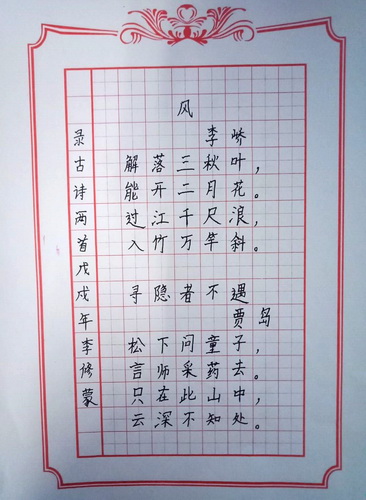 风
李峤
解落三秋叶，
能开二月花。
过江千尺浪，
入竹万竿斜。
寻隐者不遇
贾岛
松下问童子，
言师采药去。
只在此山中，
云深不知处。
录古诗两首戊戌年李修蒙